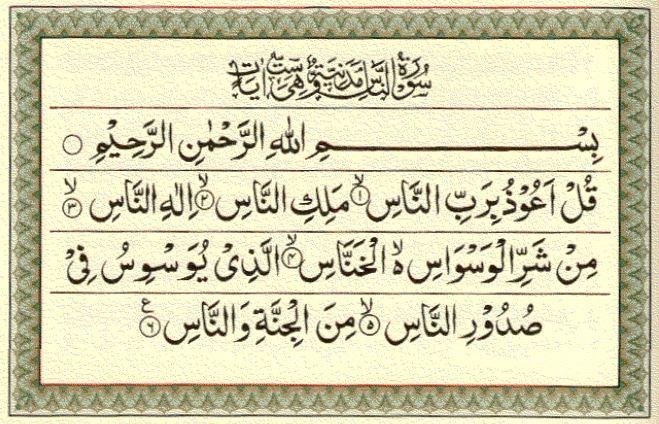 سُوْرَةُ النَّاسِ مَدَنِيَّةٌ وَّهِىَ سِتُّ اٰيَاتٍ
بِسْــــــــــــــــمِ اللهِ الرَّحْمٰنِ الرَّحِيْمِ ○
قُلْ اَعُوْذُ بِرَبِّ النَّاسِ ۙ﴿۱﴾ مَلِكِ النَّاسِ ۙ﴿۲﴾ اِلٰهِ النَّاسِ ۙ﴿۳﴾
مِنْ شَرِّ الْوَسْوَاسِ ۙ۬ الْخَنَّاسِ ۙ﴿۴﴾ الَّذِىْ يُوَسْوِسُ فِىْ
صُدُوْرِ النَّاسِ ۙ﴿۵﴾ مِنَ الْجِنَّةِ وَالنَّاسِ ﴿۶﴾ ع